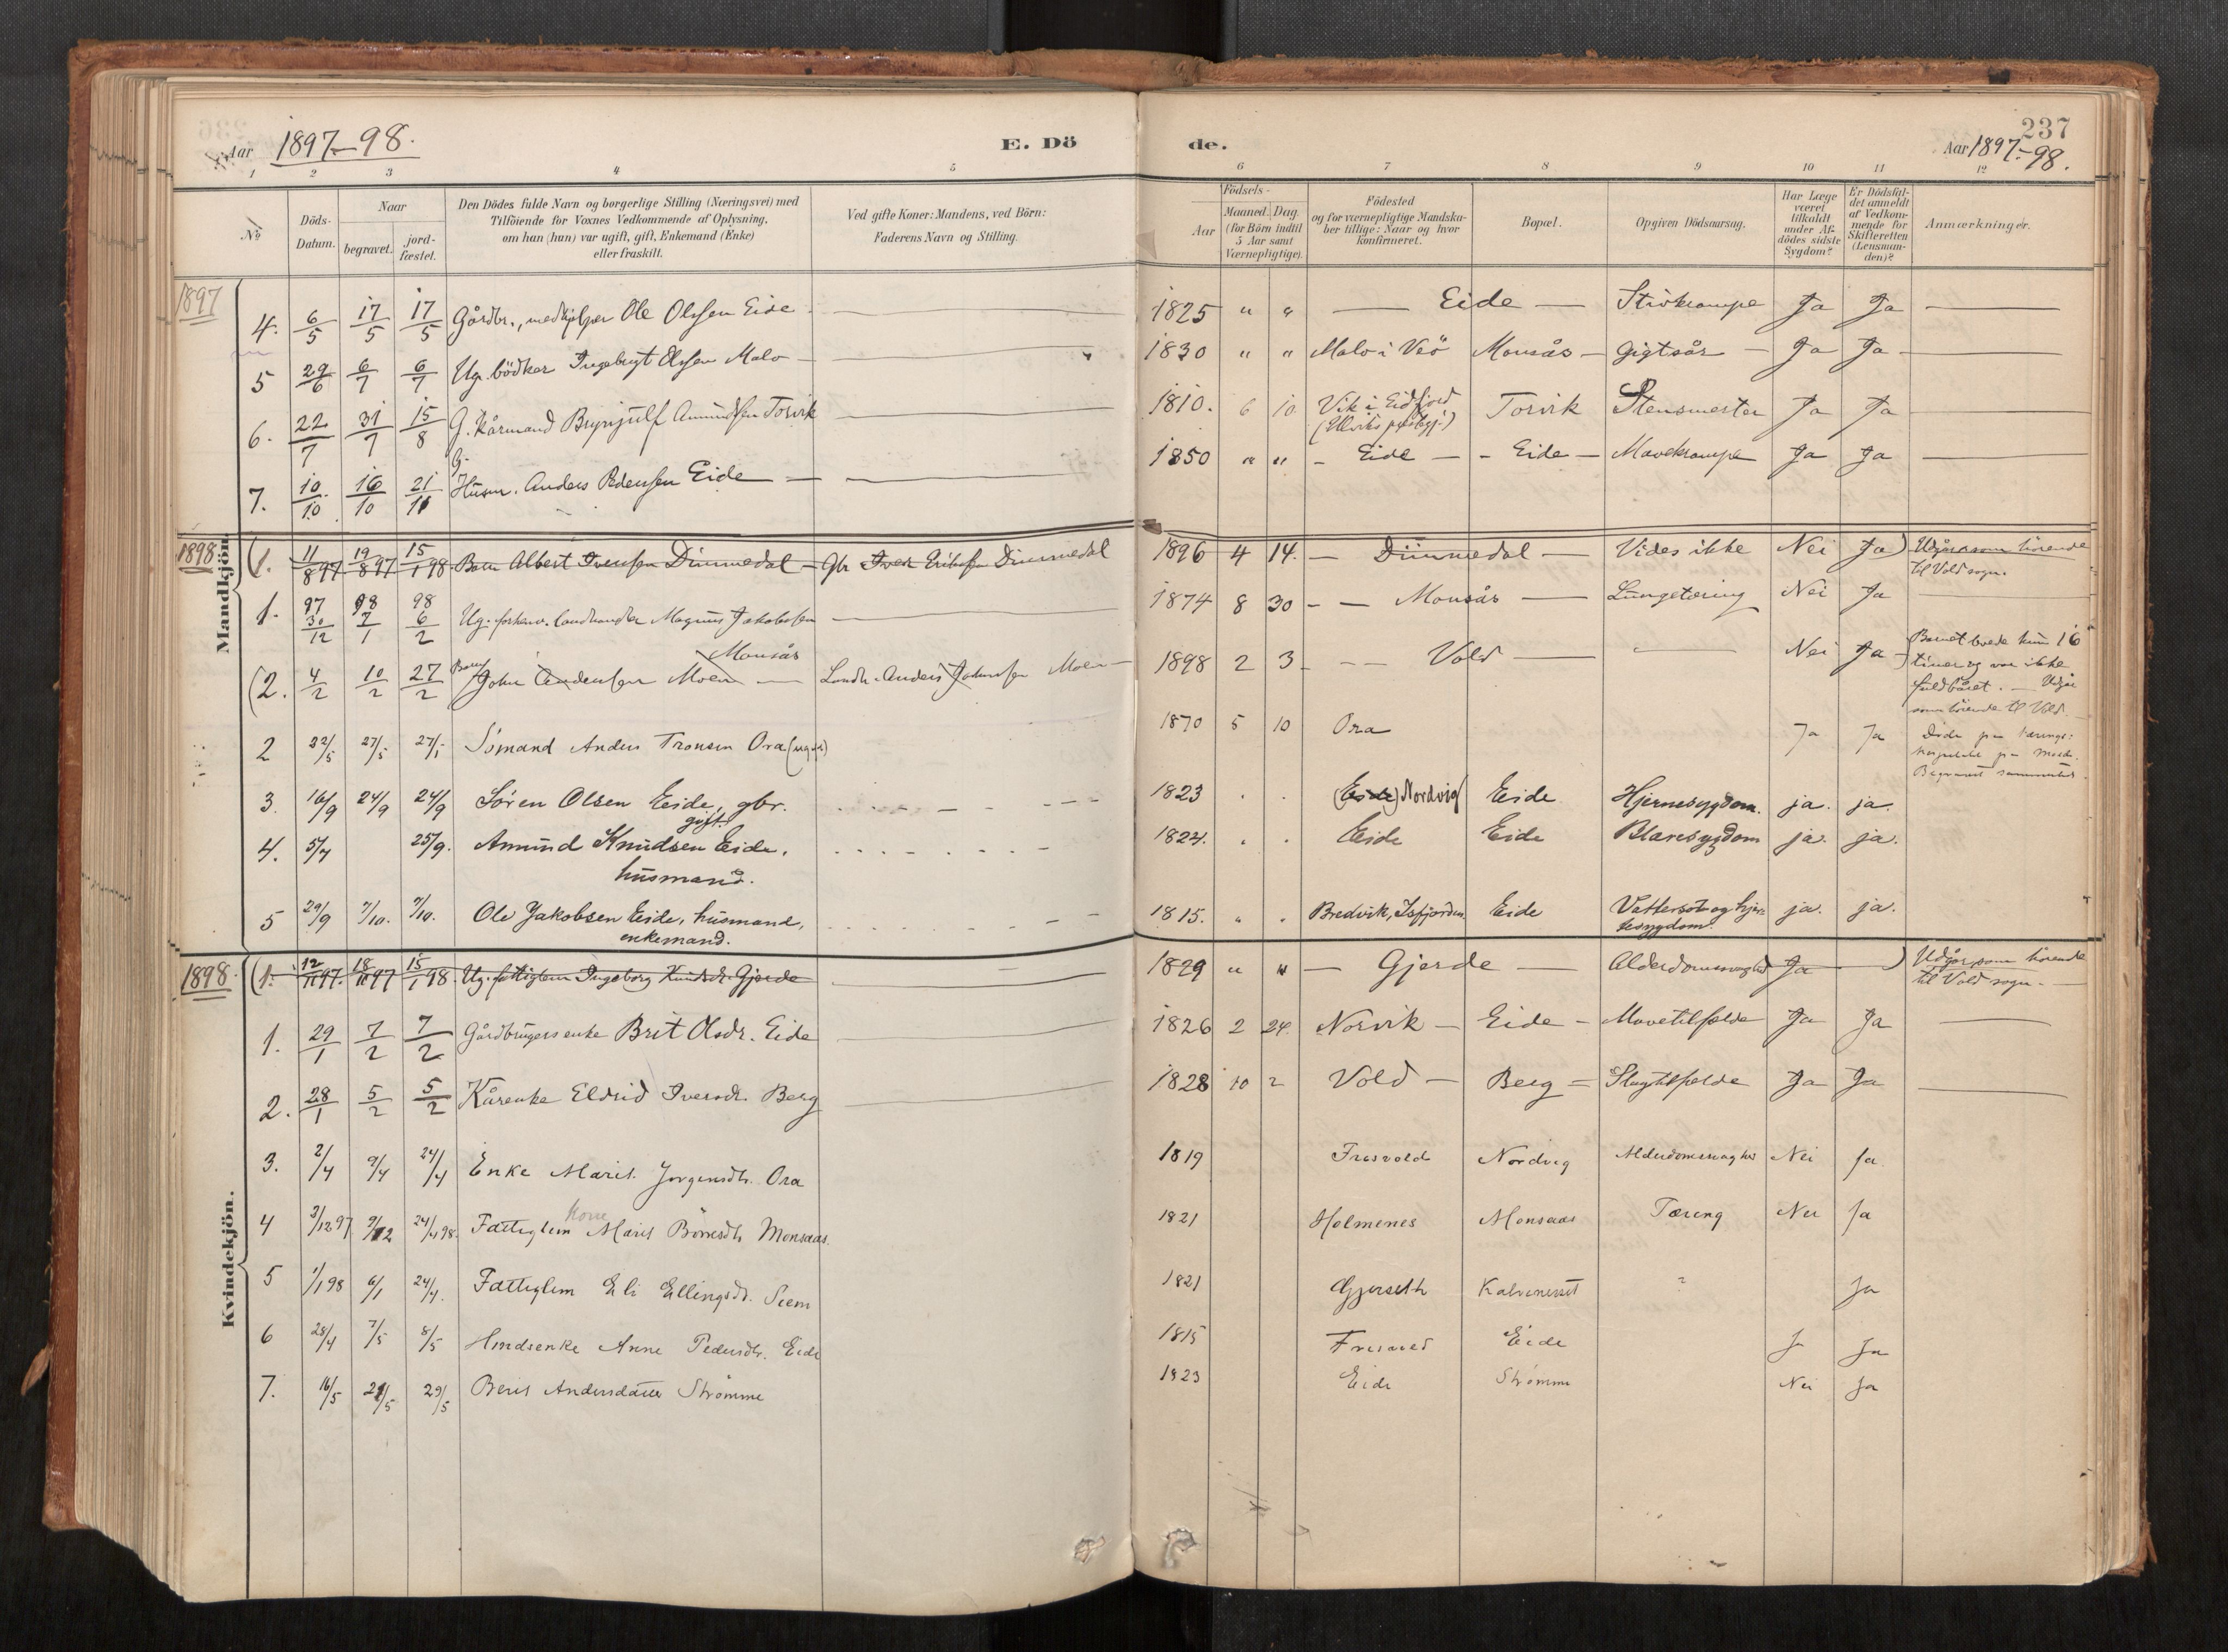 Aar 1897-98.
E. Dö
de.
237
Aar 1897-98.
1 2 3 4 5 6 7 8 9 10 11 12
№
Döds-Datum.
Naar
begravet.
jord-fæstet.
Den Dödes fulde Navn og borgerlige Stilling (Næringsvei) med
Tilföiende for Voxnes Vedkommende af Oplysning,
om han (hun) var ugift, gift, Enkemand (Enke)
eller fraskilt.
Ved gifte Koner: Mandens, ved Börn:
Faderens Navn og Stilling.
Födsels-
Aar
Maaned. Dag.
(for Börn indtil
5 Aar samt
Værnepligtige).
Födested
og for værnepligtige Mandska-
ber tillige: Naar og hvor
konfirmeret.
Bopæl.
Opgiven Dödsaarsag.
Har Læge
været
tilkaldt
under Af-
dödes sidste
Sygdom?
Er Dödsfal-
det anmeldt
af Vedkom-
mende for
Skifteretten
(Lensman-
den)?
Anmærkninger.
1897
4. 6/5 17/5 17/5 Gårdbr., medhjelper Ole Olssen Eide 1825 " " Eide Ja Ja
5 29/6 6/7 6/7 Ug. bödker Ingebrigt Olssen Malo 1830 " " Malo i Veö Monsås Gigtsår Ja Ja
6. 22/7 31/7 15/8 G. Kårmand Brynjulf Amundsen Torvik 1810. 6 10 Vik i Eidfjord
Torvik Ja Ja
7. 10/10 16/10 21/11 G. Husm. Anders Pedersen Eide 1850 " " Eide Eide Mavekrampe Ja Ja
Mandkjön.
1898
(1. 11/8 97 19/8 97 15/1 98. Barn Albert Iversen Dimmedal Gbr Iver Eriksen Dimmedal 1896 4 14. Dimmedal Vides ikke Nei Ja) Udgår som hörende
til Vold sogn.
1. 97 30/12 98 7/1 98 6/2 Ug. forhenv. landhandler Magnus Jakobsen
Monsås 1874 8 30 Monsås Lungetæring Nei Ja
(2. 4/2 10/2 27/2 Barn John Andersen Moen Landh. Anders Johnsen Moen 1898 2 3 Vold Nei Ja) Barnet levede kun 16
timer og var ikke
fuldbåret. Udgår
som hörende til Vold.
2 22/5 27/5 27/5 Sömand Anders Tronsen Ora (ugift) 1870 5 10 Ora Ja Ja Döde paa
3. 16/9 24/9 24/9 Sören Olsen Eide, gbr.
gift. 1823 (Eide) Nordvig Eide Hjernesygdom. ja. ja.
4. 5/7 25/9. Amund Knudsen Eide,
husmand. 1824. Eide Eide Blæresygdom ja. ja.
5 29/9 7/10. 7/10. Ole Jakobsen Eide, husmand,
enkemand. 1815. " Bredvik, Isfjorden. Eide Vattersot og hjer-
tesygdom. ja. ja.
Kvindekjön.
1898.
(1. 12/11 97. 18/11 97 15/1 98. Ug. fattiglem Ingeborg Knudsdr. Gjerde 1829 " " Gjerde Alderdomssvaghed Ja ) Udgår som hörende
til Vold sogn.
1. 29/1 7/2 7/2 Gårdbrugers enke Brit Olsdr. Eide 1826 2 24. Norvik Eide Mavetilfælde Ja Ja
2. 28/1 5/2 5/2 Kårenke Eldrid Iversdr. Berg 1828 10 2 Vold Berg Slagtilfælde Ja Ja
3. 2/4 9/4 24/4 Enke Marit Jorgensdtr. Ora 1819 Fresvold Nordvig Alderdomssvaghed Nei Ja.
4 3/12 97 9/12 24/4 98. Fattiglem Kone Marit Börresdtr Monsaas. 1821 Holmenes Monsaas Tæring Nei Ja
5 1/1 98 6/1 24/4. Fattiglem Eli Ellingsdtr. Siem 1821 Gjerseth ? Ja
6 28/4 7/5 8/5 Hmdsenke Anne Pedersdtr. Eide 1815 Eide J Ja
7. 16/5 21/5 29/5 Berit Andersdatter Strömme 1823 Eide Strömme Nei Ja